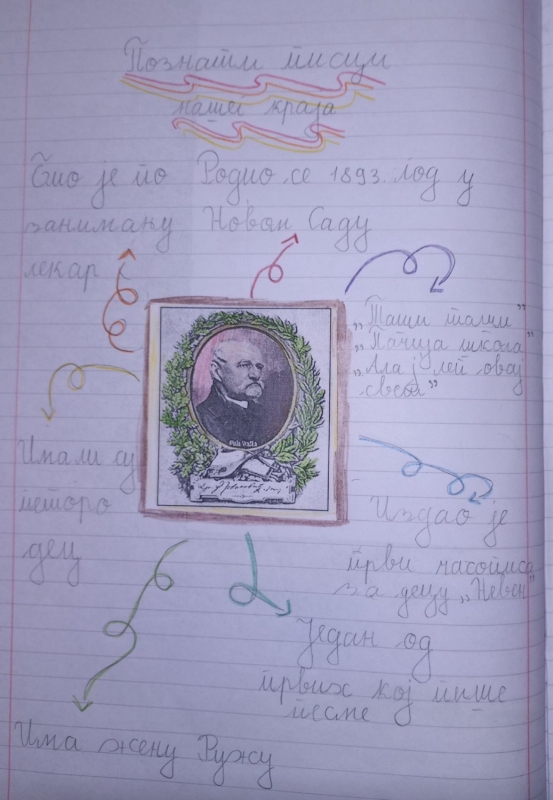 Познати писци
нашег краја
Био је по
занимању
лекар
Родио се 1893. год у
Новом Саду
„Таши таши”
„Пачија школа”
„Ала ј леп овај
свет”
Имали су
петоро
дец
Издао је
први часопис
за децу „Невен”
Један од
првих кој пише
песме
Има жену Ружу